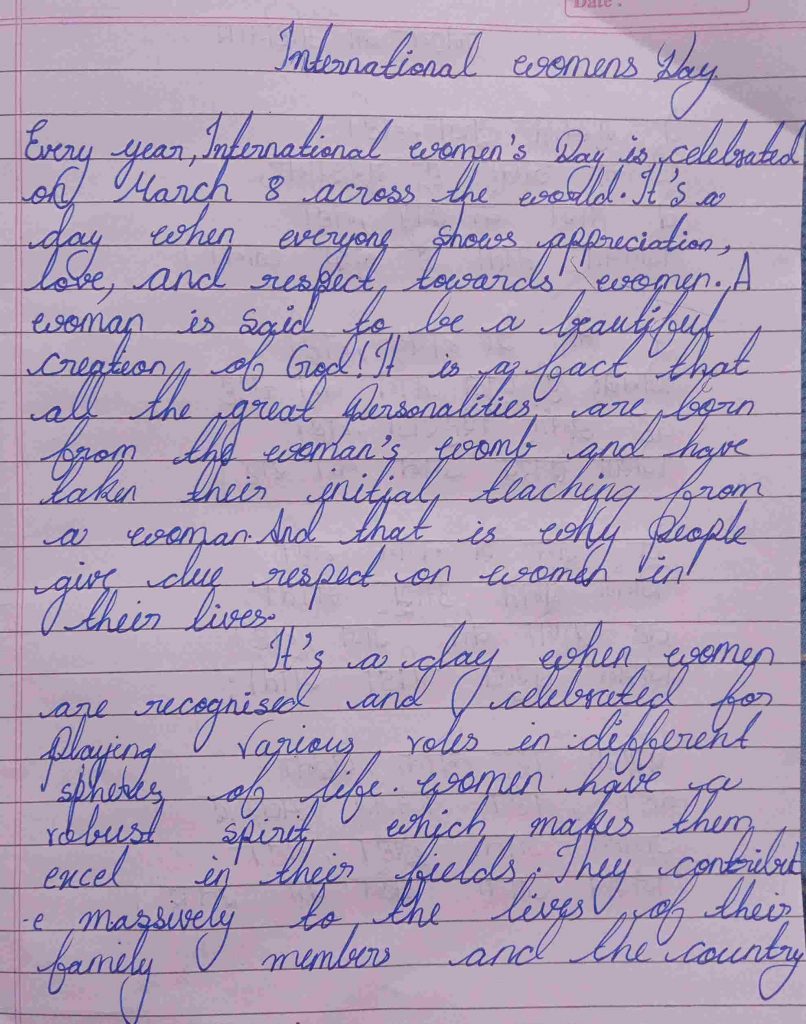 Date :
International womens Day
Every year, International women's Day is celebrated
on March 8 across the world. It's a
day when everyone shows appreciation,
love, and respect towards women. A
woman is said to be a beautiful
creation of God! It is a fact that
all the great Personalities are born
from the woman's womb and have
taken their initial teaching from
a woman. And that is why People
give due respect on women in
their lives.
It's a day when women
are recognised and celebrated for
Playing various roles in different
spheres of life. women have a
robust spirit which makes them
excel in their fields. They contribut
-e massively to the lives of their
family members and the country